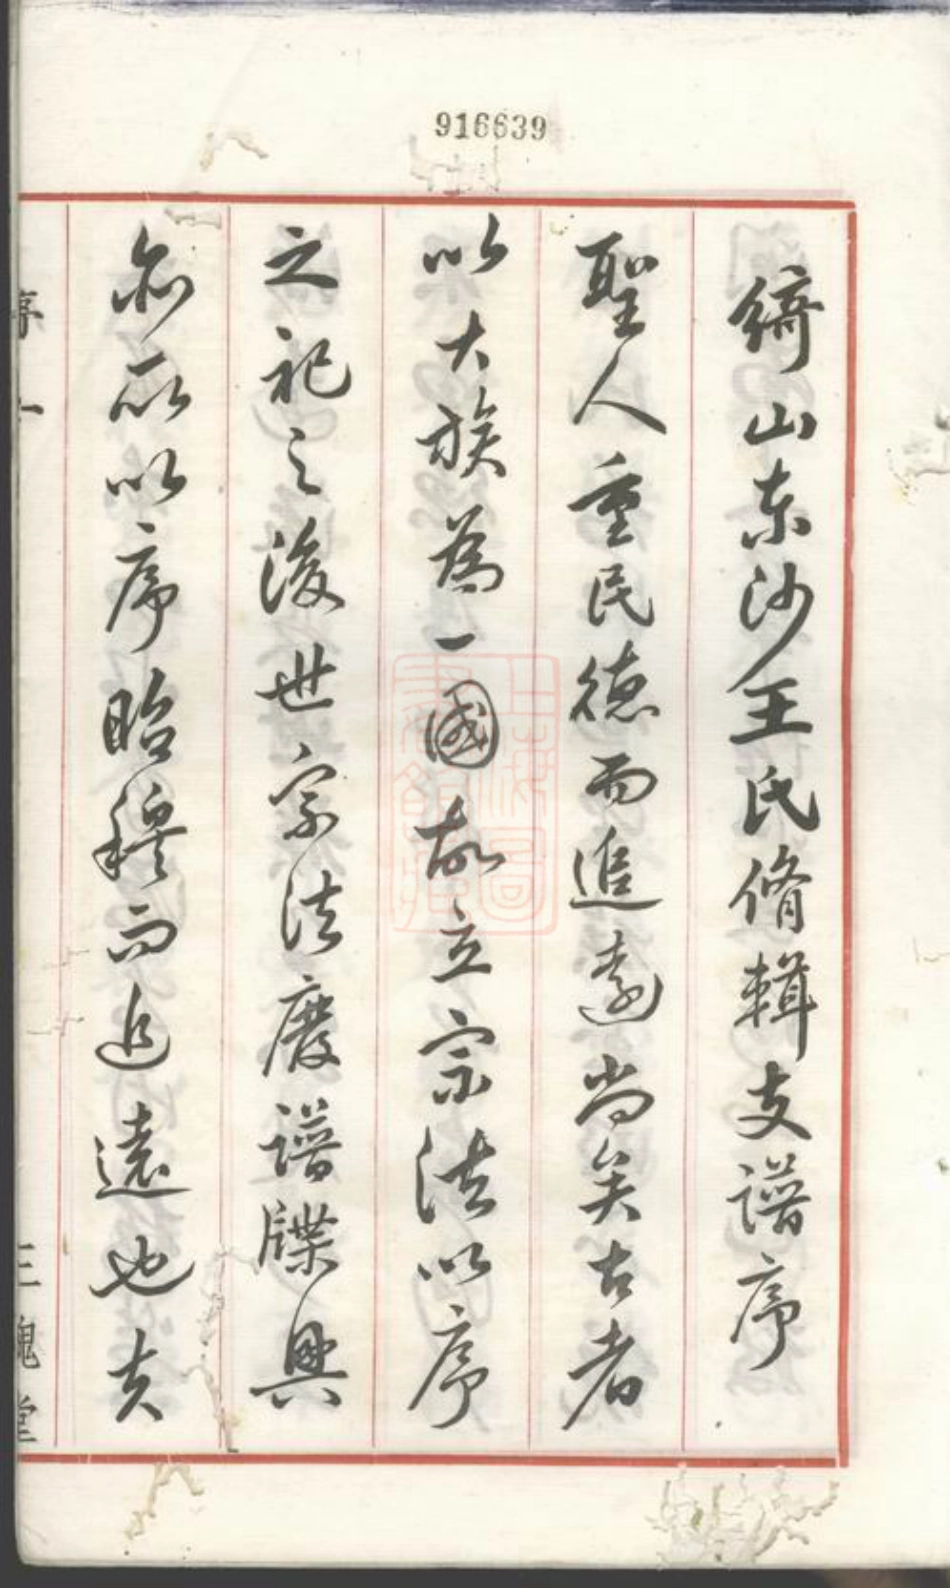 916639
綺山東沙王氏脩輯支譜序
聖人重民德而追遠尚矣古者
以大族為一國故立宗法以序
之祀之後世宗法廢譜牒興
亦所以序昭穆而追遠也夫
序 一 三槐堂
上海圖書館藏